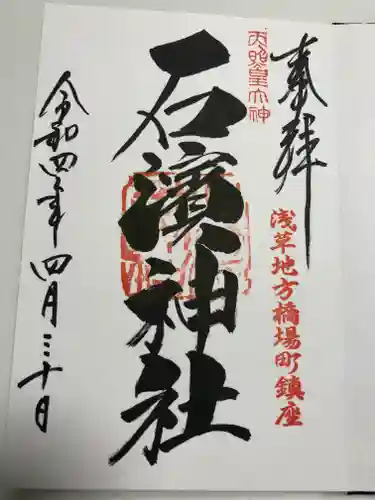 奉拝
天照皇大神
浅草地方橋場町鎮座
石濱神社
令和四年四月三十日